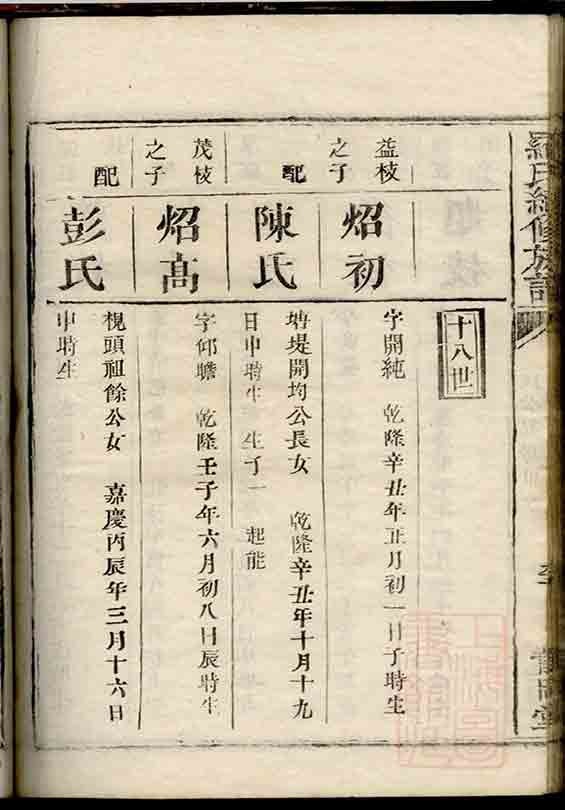 羅氏續修族譜
十八世
益枝
之子
炤初
字開純 乾隆辛丑年正月初一日子時生
配
陳氏
塘堤開均公長女 乾隆辛丑年十月十九
日申時生 生子一 起能
茂枝
之子
炤高
字仰瞻 乾隆壬子年六月初八日辰時生
配
彭氏
梘頭祖餘公女 嘉慶丙辰年三月十六日
申時生